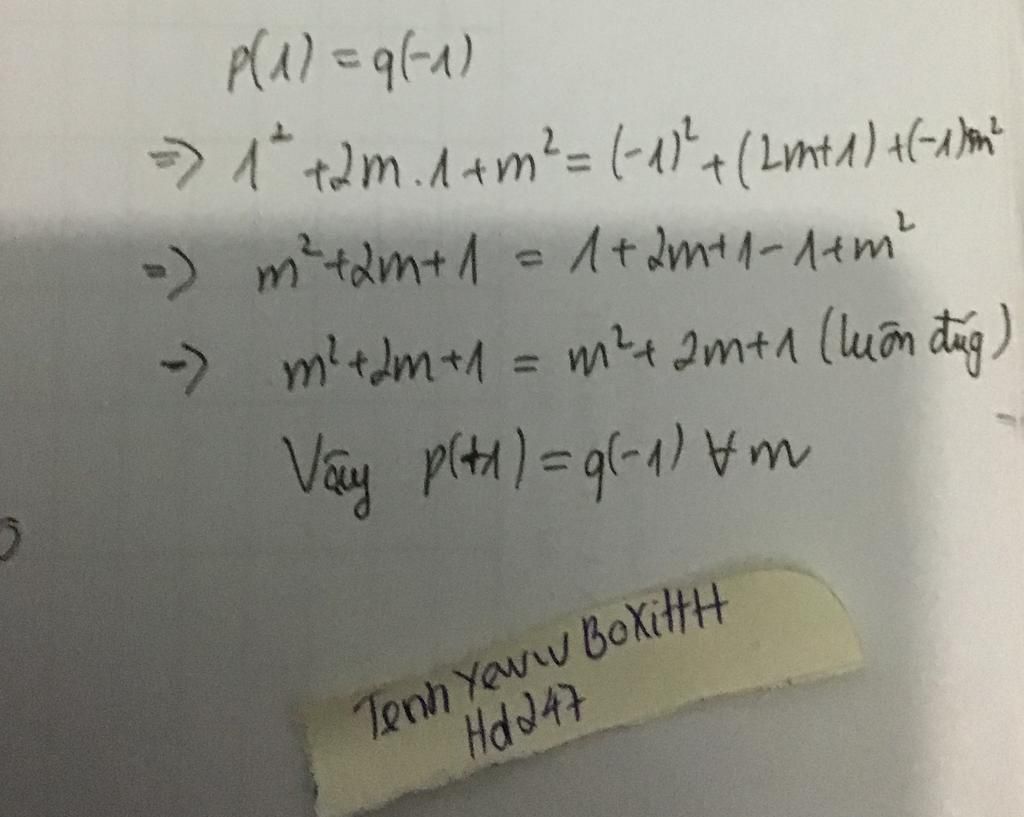 p(1) = q(-1)
=> 1² + 2m . 1 + m² = (-1)² + (2m+1) + (-1)m²
=> m² + 2m + 1 = 1 + 2m + 1 - 1 + m²
-> m² + 2m + 1 = m² + 2m + 1 (luôn đúg)
Vậy p(+1) = q(-1) ∀ m
Tenh Yewww BoXiHH
Hdd247